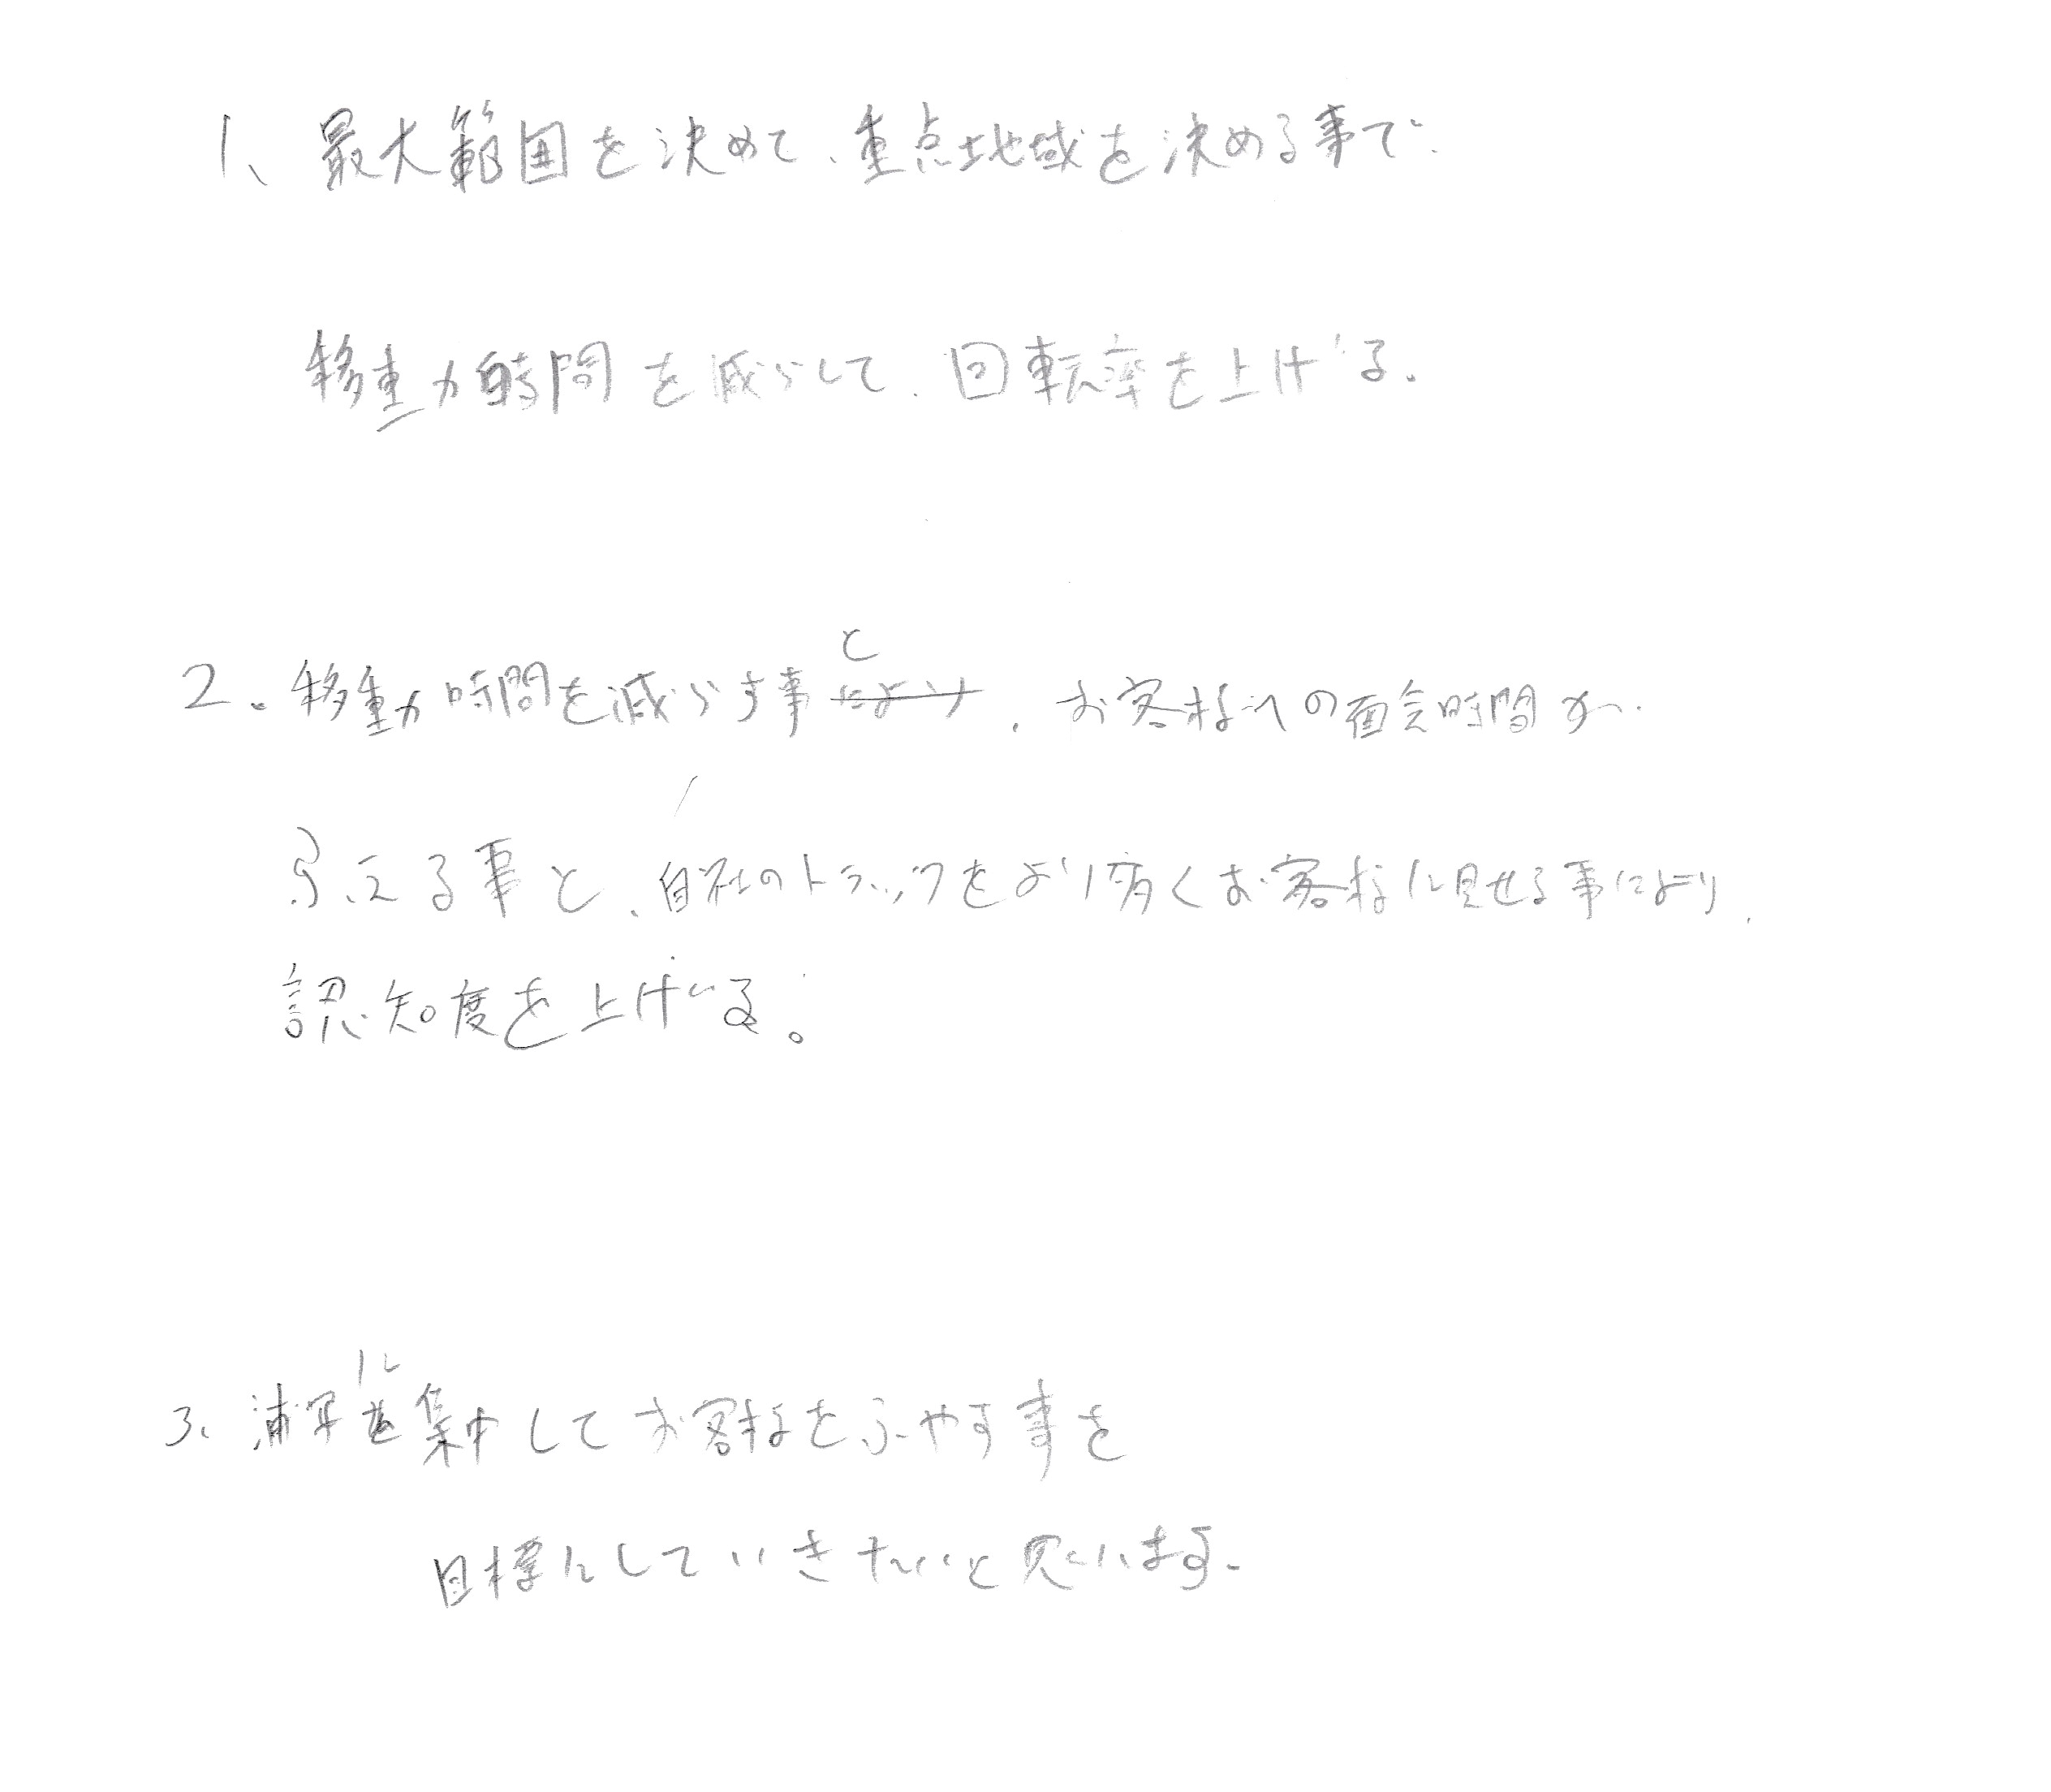 1、最大範囲を決めて、重点地域を決める事で
移動時間を減らして、回転率を上げる。
2.移動時間を減らす事と、お客様への面会時間が
ふえる事と、自社のトラックをより多くお客様に見せる事により、
認知度を上げる。
3、浦安に集中してお客様をふやす事を
目標にしていきたいと思います。